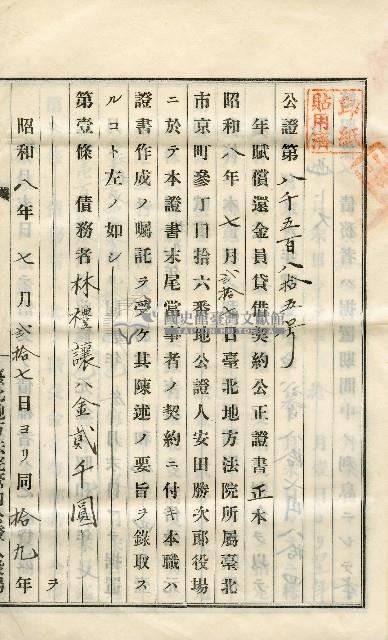 印紙
貼用濟
公證第八千五百八拾五號
年賦償還金員貸借契約公正證書正本
昭和八年七月貳拾七日臺北地方法院所屬臺北
市京町參丁目拾六番地公證人安田勝次郎役場
ニ於テ本證書末尾當事者ノ契約ニ付キ本職ハ
證書作成ノ囑託ヲ受ケ其陳述ノ要旨ヲ錄取ス
ルコト左ノ如シ
第壹條 債務者林禮讓ハ金貳千圓ヲ
昭和八年七月貳拾七日ヨリ同拾九年
國史館臺灣文獻館